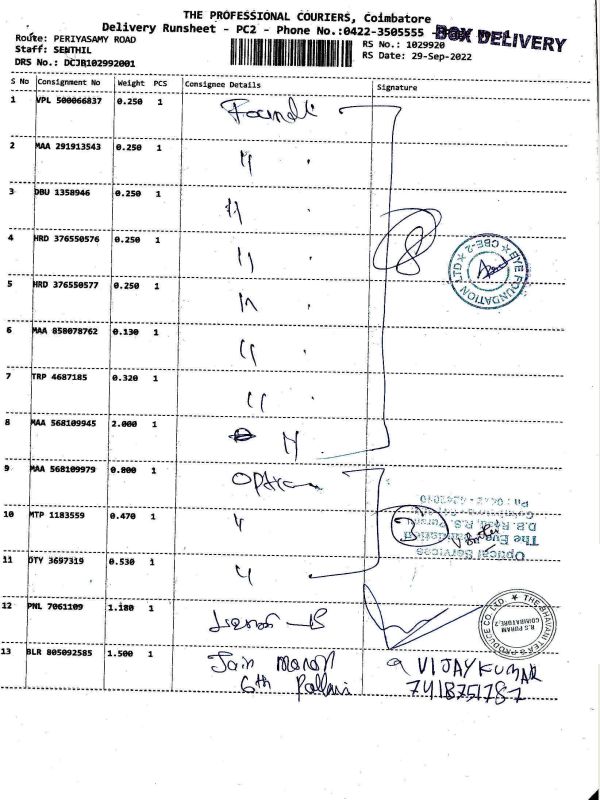 THE PROFESSIONAL COURIERS, Coimbatore
Delivery Runsheet - PC2 - Phone No.:0422-3505555 -
BOX DELIVERY
Route: PERIYASAMY ROAD
RS No.: 1029920
Staff: SENTHIL
RS Date: 29-Sep-2022
DRS No.: DCJB102992001
S No Consignment No Weight PCS Consignee Details Signature
1 VPL 500066837 0.250 1
2 MAA 291913543 0.250 1 "
3 DBU 1358946 0.250 1 "
4 HRD 376550576 0.250 1 "
EYE FOUNDATION LTD ★ CBE-2 ★
5 HRD 376550577 0.250 1 "
6 MAA 858078762 0.130 1 "
7 TRP 4687185 0.320 1 "
8 MAA 568109945 2.000 1 "
9 MAA 568109979 0.800 1
10 MTP 1183559 0.470 1 "
Optical Services
The Eye Foundation
D.B. Road, R.S. Puram
11 DTY 3697319 0.530 1 "
12 PNL 7061109 1.180 1
R.S PURAM
COIMBATORE-2
13 BLR 805092585 1.500 1 Jain
6th
VIJAYKUMAR
7418751787